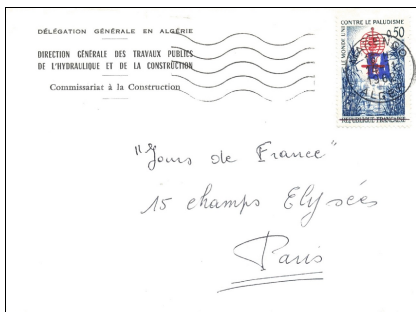 DÉLÉGATION GÉNÉRALE EN ALGÉRIE
DIRECTION GÉNÉRALE DES TRAVAUX PUBLICS
DE L'HYDRAULIQUE ET DE LA CONSTRUCTION
Commissariat à la Construction
LE MONDE UNI CONTRE LE PALUDISME
0,50
EA
ALGER
RÉPUBLIQUE FRANÇAISE
"Jours de France"
15 champs Elysées
Paris